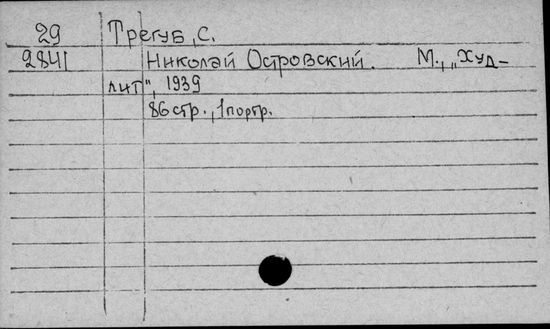 29 Трегуб, С.
2841 Николай Островский. М., „Худ-
лит", 1939
86 стр., 1 портр.